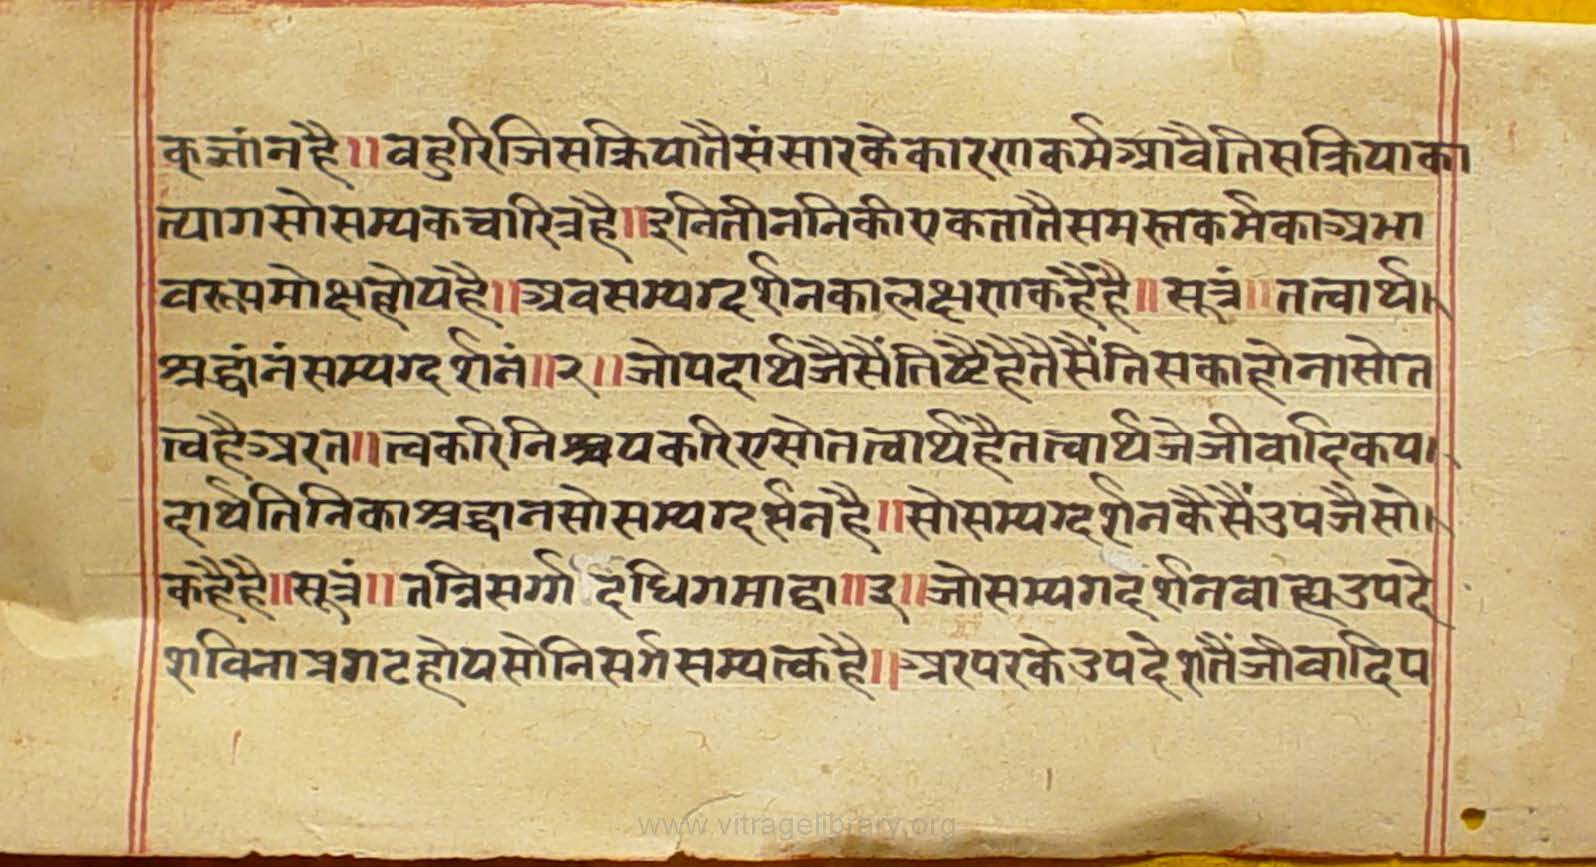 कज्ञांनहै॥बहुरिजिसक्रियातैसंसारकेकारणकर्मआवैतिसक्रियाका
त्यागसोसम्यकचारित्रहै॥इनितीननिकीएकतातैसमस्तकर्मकाअभा
वरूपमोक्षहोयहै॥अवसम्यग्दर्शनकालक्षणकहैंहै॥सूत्रं॥तत्वार्थ।
श्रद्धांनंसम्यग्दर्शनं॥२॥जोपदार्थजैसैंतिष्टैहैतैसैंतिसकाहोनासोत
त्वहैअरत॥त्वकरिनिश्चयकरिएसोतत्वार्थहैतत्वार्थजेजीवादिकप।
दार्थतिनिकाश्रद्धानसोसम्यग्दर्सनहै॥सोसम्यग्दर्शनकैसैंउपजैसो।
कहैहै॥सूत्रं॥तन्निसर्गादधिगमाद्वा॥३॥जोसम्यगदर्शनवाह्यउपदे
शविनाप्रगटहोयसोनिसर्गसम्यत्कहै॥अरपरकेउपदेशतैंजीवादिप
www.vitragelibrary.org